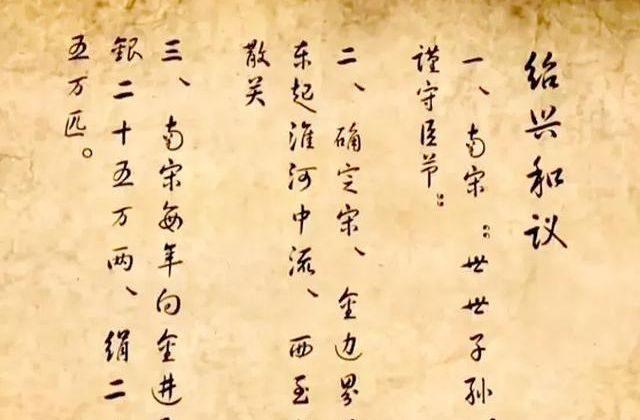 绍兴和议
一、南宋：世世子孙，
谨守臣节：
二、确定宋、金边界
东起淮河中流、西至
散关
三、南宋每年向金进
銀二十五万两、绢二
五万匹。